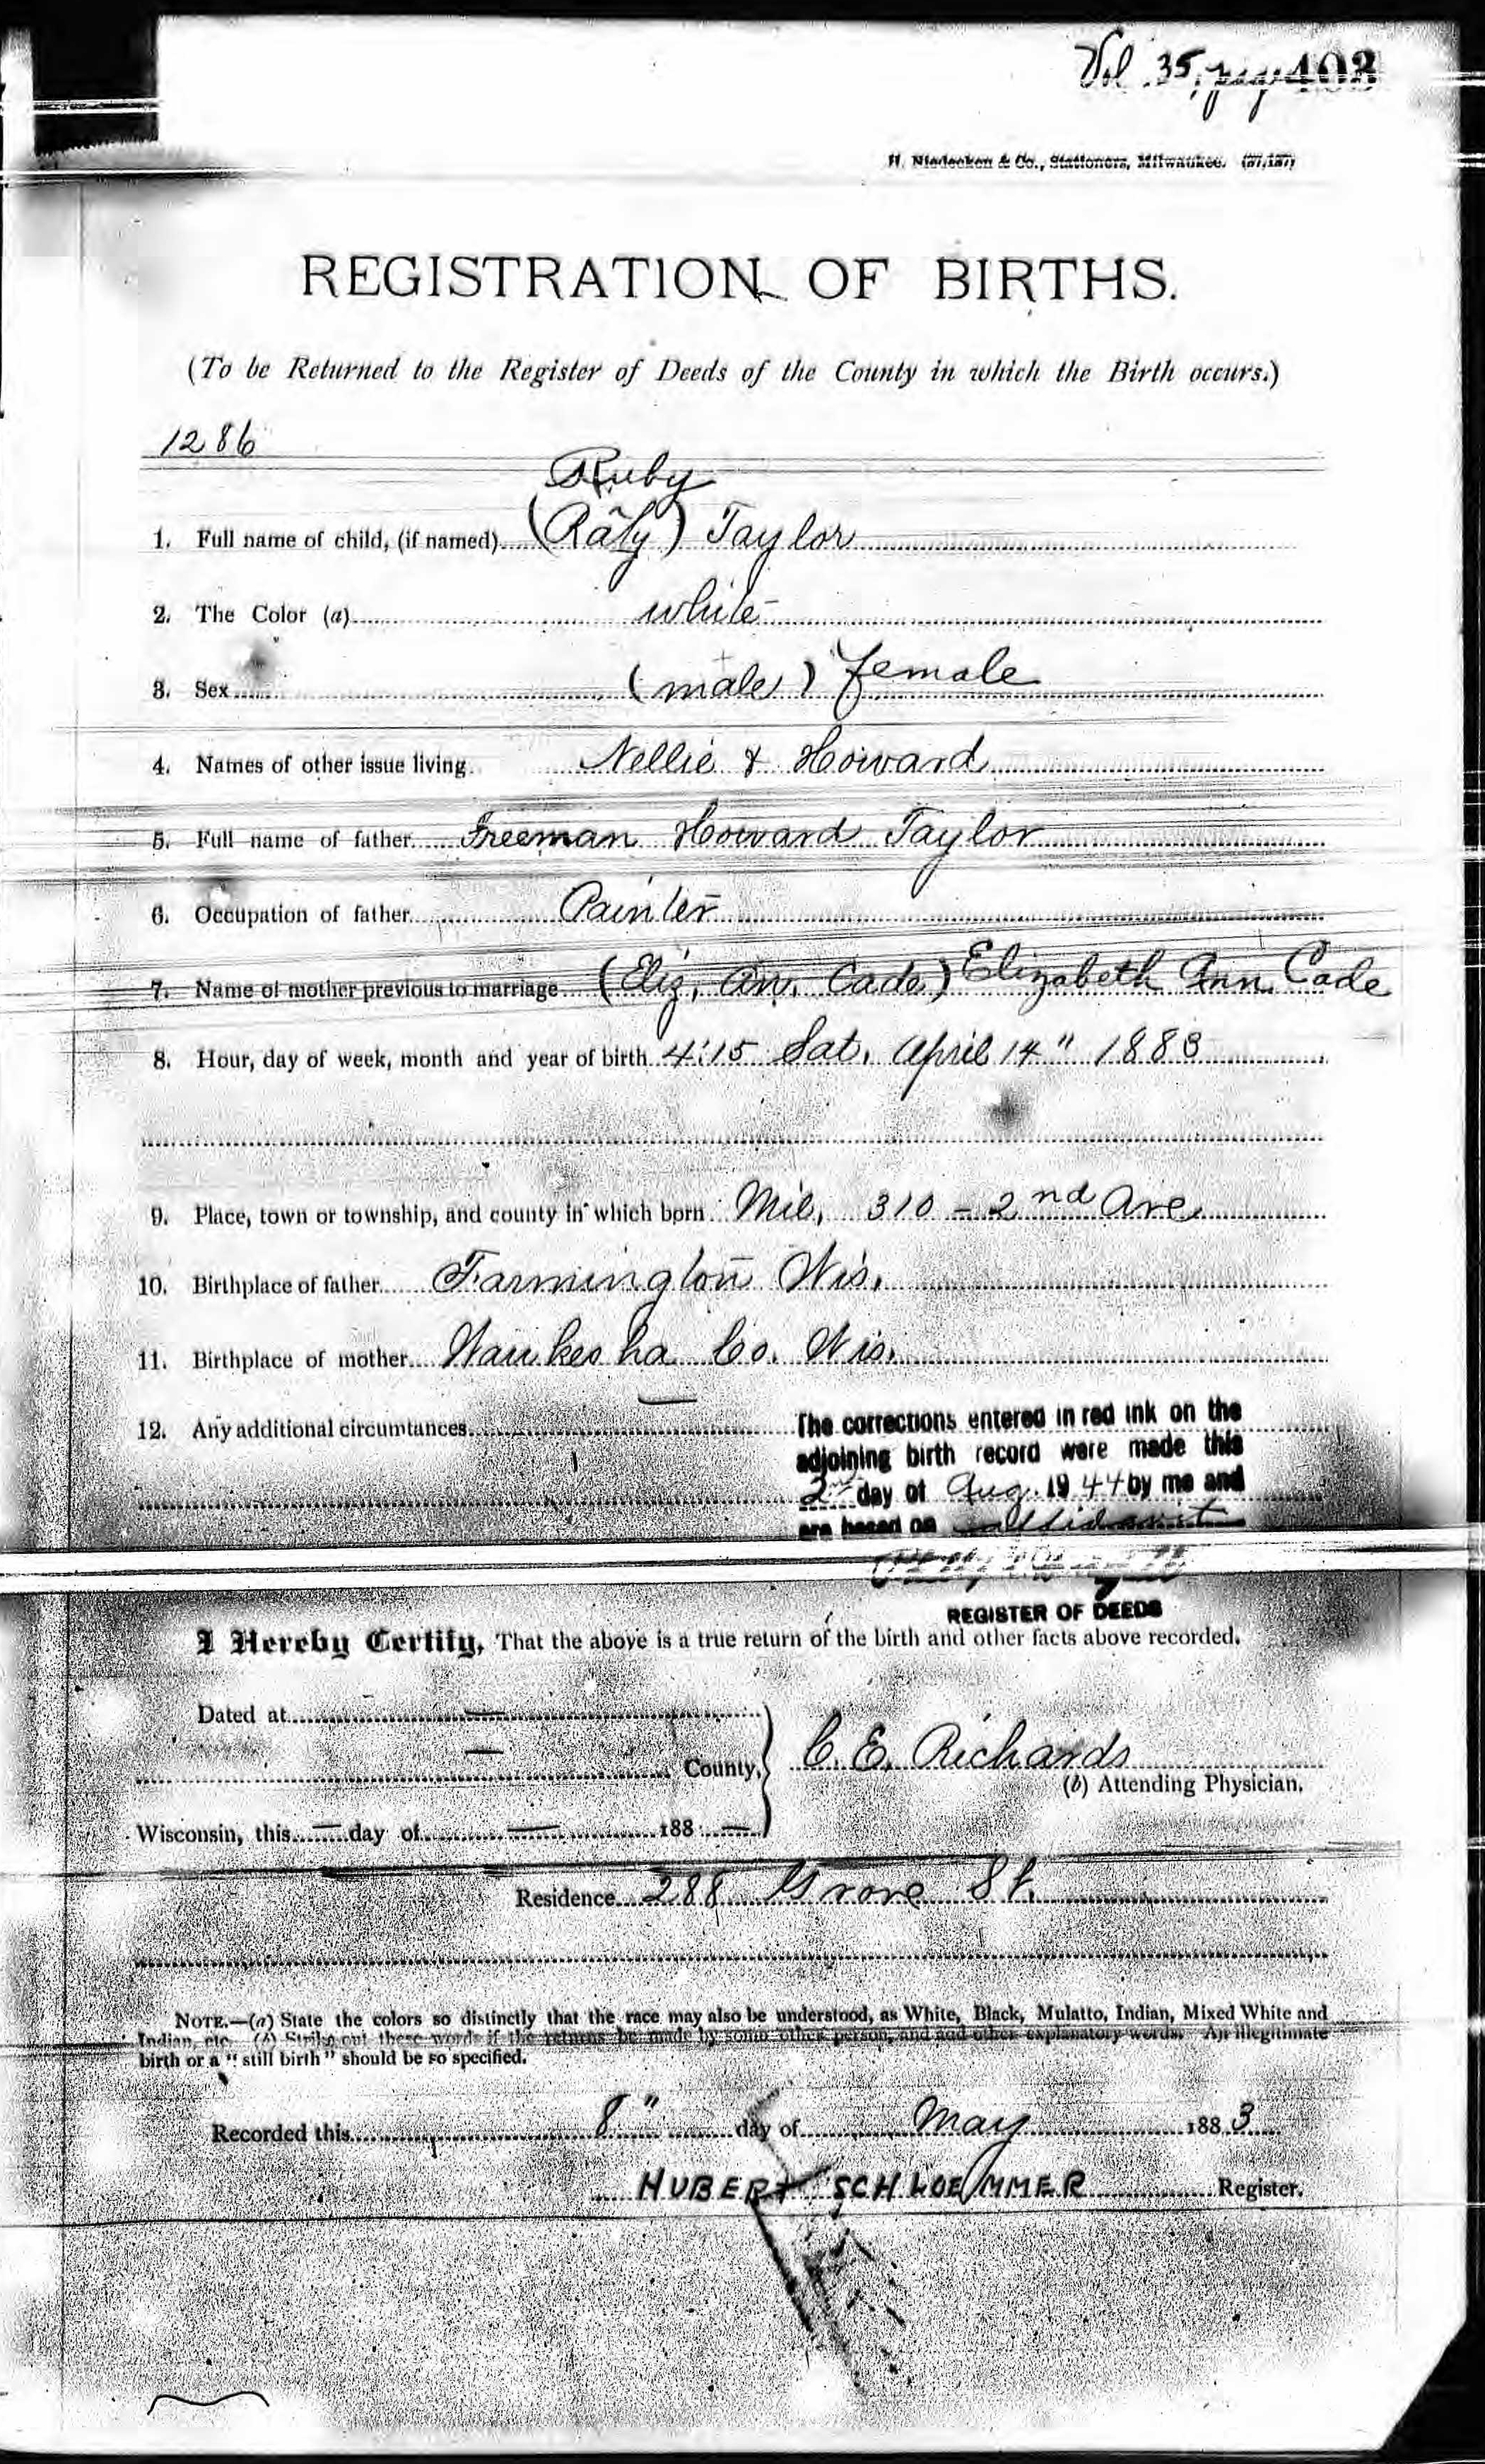 Vol 35, page 403
H. Niedecken & Co., Stationers, Milwaukee. (37,187)
REGISTRATION OF BIRTHS.
(To be Returned to the Register of Deeds of the County in which the Birth occurs.)
1286
Ruby
1. Full name of child, (if named) (Raly) Taylor
2. The Color (a) white
3. Sex (male) female
4. Names of other issue living Nellie & Howard
5. Full name of father Freeman Howard Taylor
6. Occupation of father Painter
7. Name of mother previous to marriage (Eliz, An, Cade) Elizabeth Ann Cade
8. Hour, day of week, month and year of birth 4:15 Sat, April 14" 1883
9. Place, town or township, and county in which born Mil, 310 - 2nd Ave
10. Birthplace of father Farmington Wis.
11. Birthplace of mother Waukesha Co. Wis.
12. Any additional circumtances
The corrections entered in red ink on the
adjoining birth record were made this
2nd day of Aug. 1944 by me and
are based on affidavit
REGISTER OF DEEDS
I Hereby Certify, That the above is a true return of the birth and other facts above recorded.
Dated at —
— County,
C. E. Richards
(b) Attending Physician.
Wisconsin, this — day of — 188 —
Residence 288 Grove St.
NOTE.—(a) State the colors so distinctly that the race may also be understood, as White, Black, Mulatto, Indian, Mixed White and
Indian, etc. (b) Strike out these words if the returns be made by some other person, and add other explanatory words. An illegitimate
birth or a "still birth" should be so specified.
Recorded this 8" day of May 1883
HUBERT SCHLOEMMER Register.